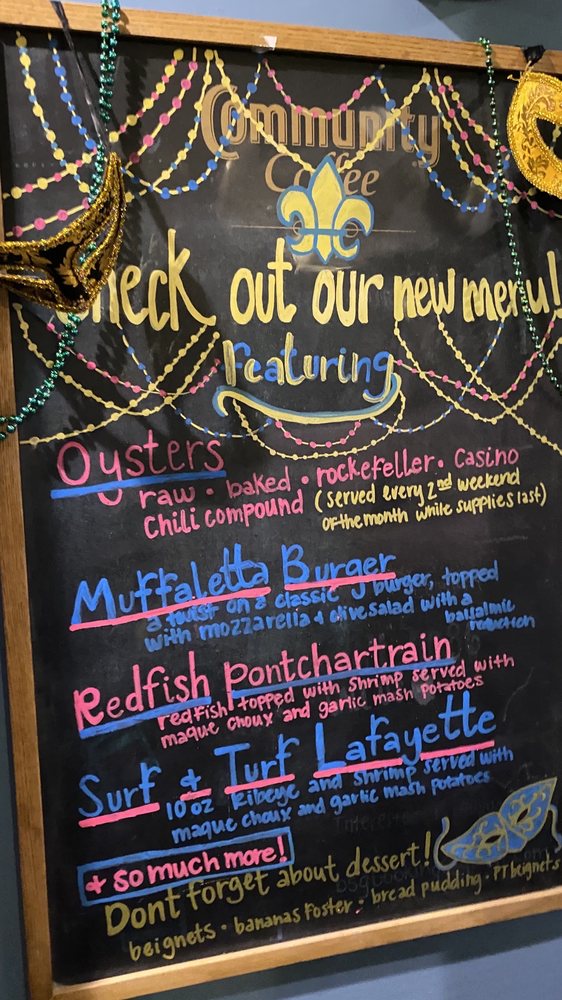 Community
Coffee
Check out our new menu!
Featuring
Oysters
raw · baked · rockefeller · Casino
Chili compound (served every 2nd weekend
of the month while supplies last)
Muffaletta Burger
a twist on a classic burger, topped
with mozzarella + olive salad with a
balsalmic
reduction
Redfish Pontchartrain
redfish topped with shrimp served with
maque choux and garlic mash potatoes
Surf & Turf Lafayette
10 oz Ribeye and shrimp served with
maque choux and garlic mash potatoes
+ so much more!
Dont forget about dessert!
beignets · bananas foster · bread pudding · PT beignets